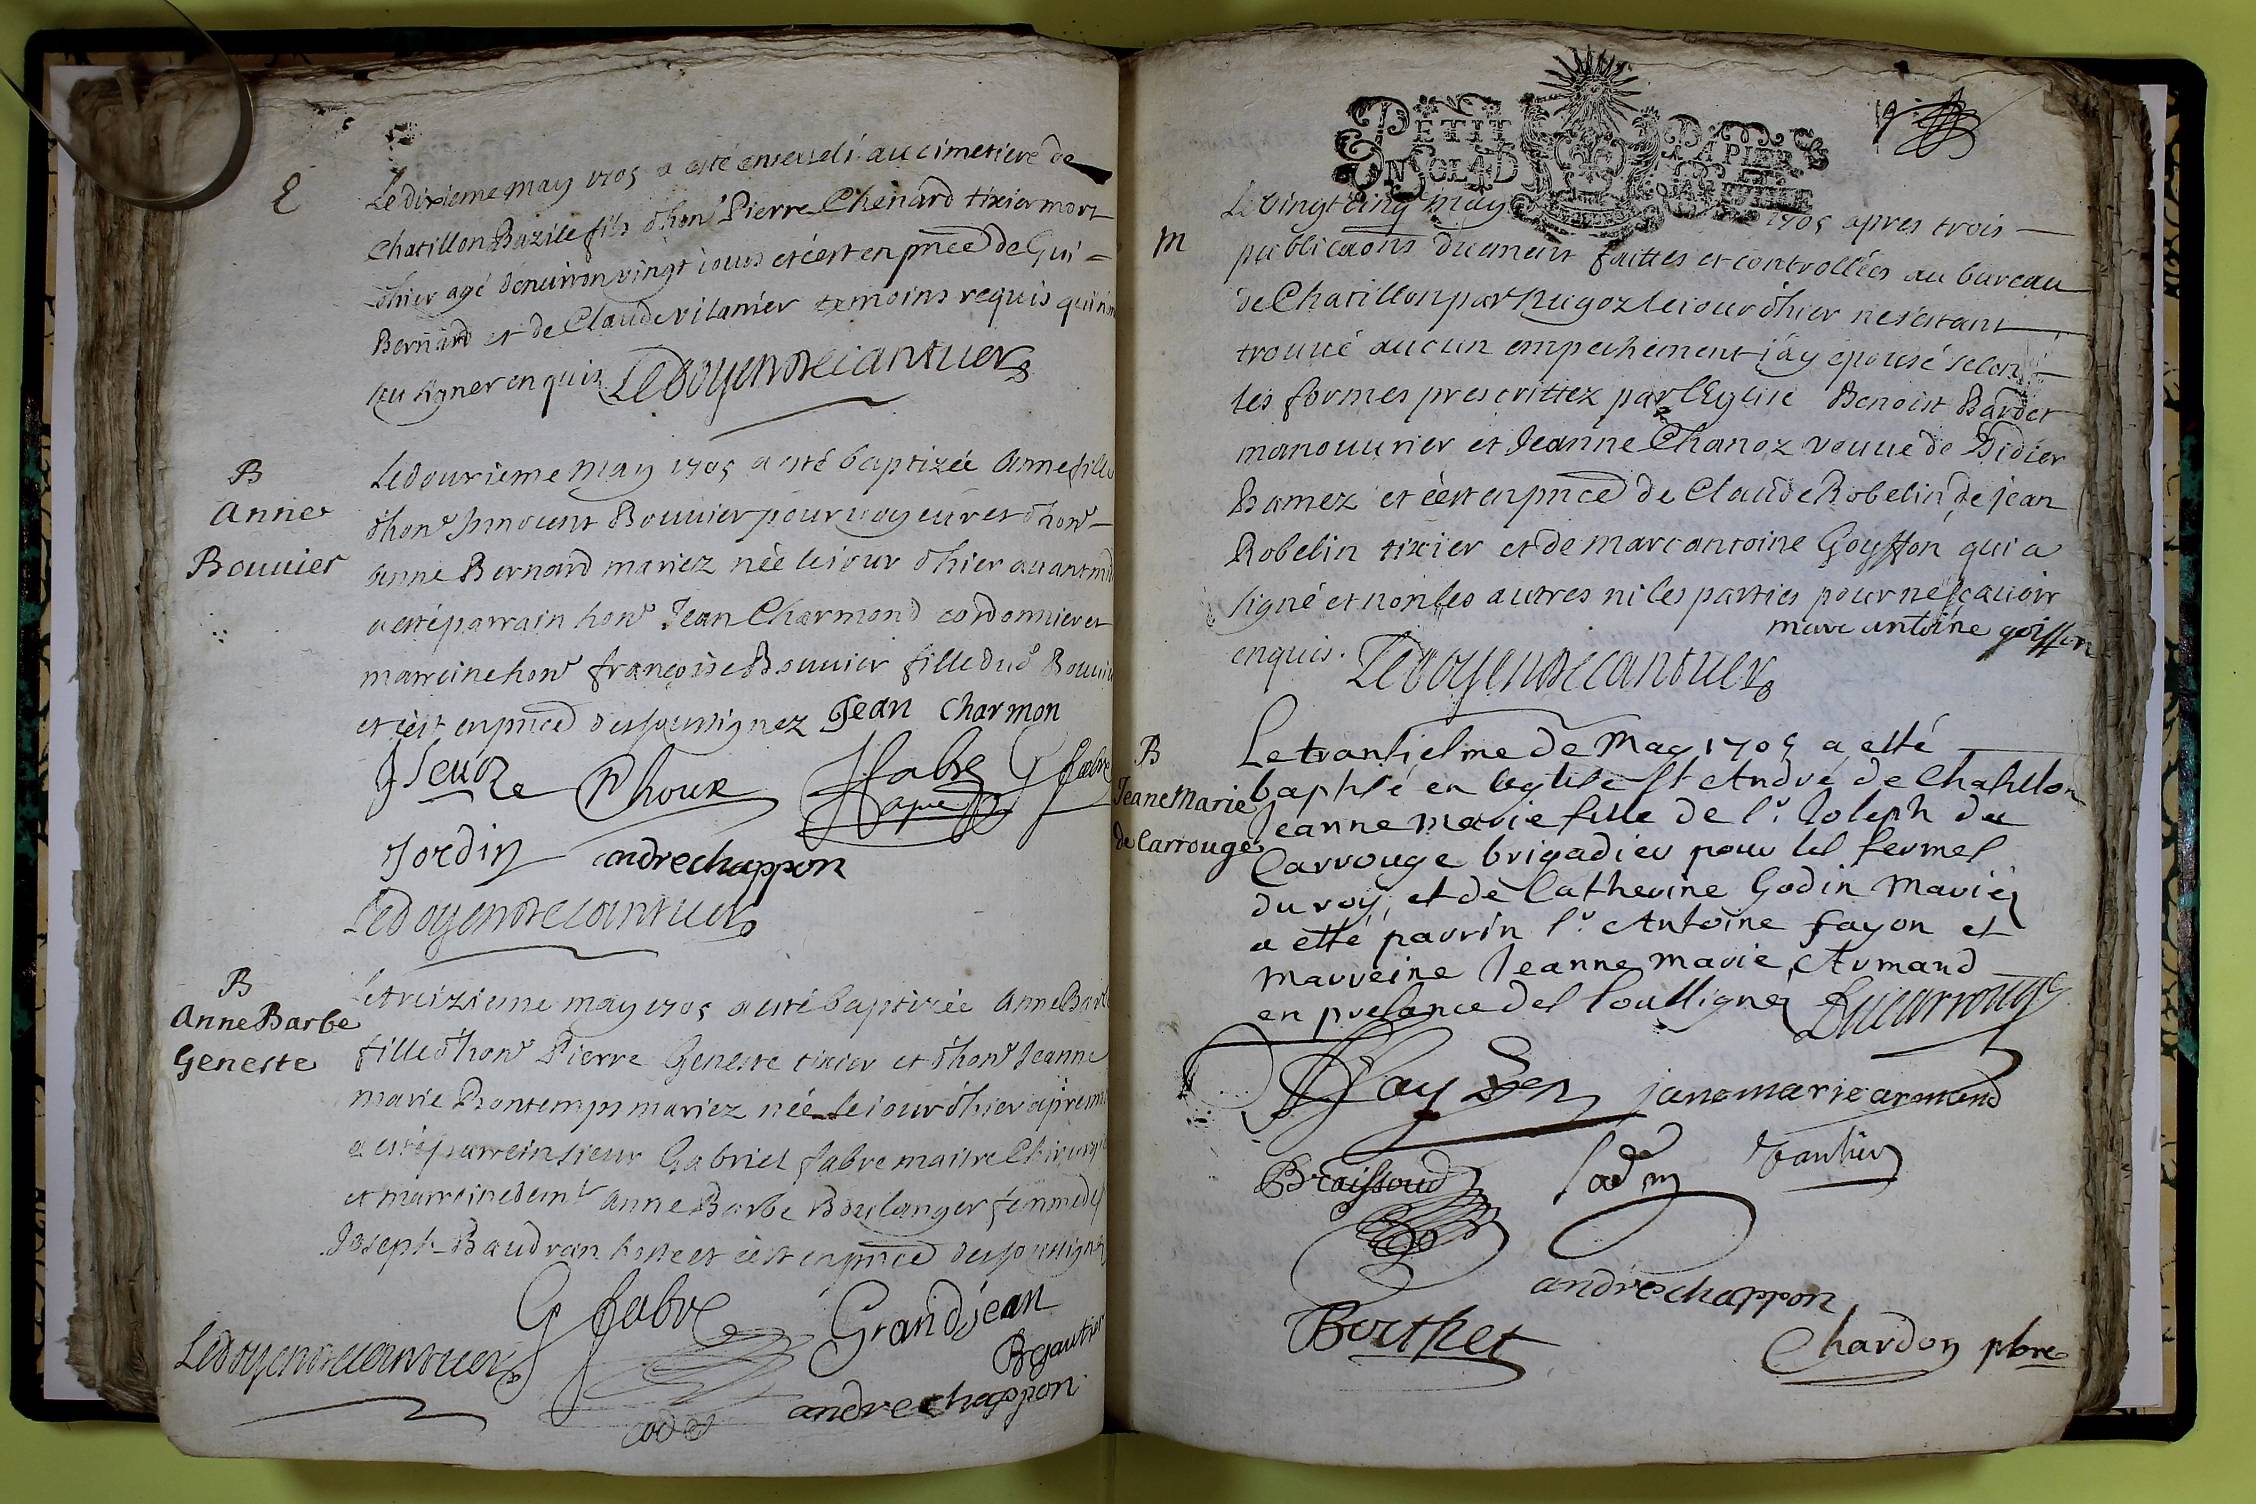 E
Le dixieme may 1705 a esté enseveli au cimetiere de
Chatillon Bazile fils d'hon^r Pierre Chenard tixier mort
hier agé d'environ vingt iours et c'est en pñce de Gui =
Bernard et de Claude vilanier temoins requis qui n'ont
sçu signer enquis Ledoyen decantuer
B
Anne
Bouvier
Le douzieme May 1705 a esté baptizée Anne fille
d'hon^r Innocent Bouvier pourvoyeur et d'hon^r
anne Bernard mariez née le iour d'hier avant midi
a esté parrain hon^r Jean Charmond cordonnier et
marreine hon^r françoise Bouvier fille dud^t Bouvier
et c'est en pñce des soussignez Jean Charmon
Fabre G fabre
Jordin andrechappon
Ledoyen decantuer
B
Anne Barbe
Geneste
Le treizieme may 1705 a esté baptizée Anne Barbe
fille d'hon^r Pierre Geneste tixier et d'hon^r Jeanne
marie Bontemps mariez née le iour d'hier apremidi
a esté parrein sieur Gabriel fabre maitre Chirurgien
et marreine dem^lle Anne Barbe Boulanger femme de s^r
Joseph Baudran hoste et c'est en pñce des soussignez
G fabre Grandjean
Ledoyen decantuer B gautier
andrechappon
PETIT PAPIER
Le vingtcinq may 1705 apres trois
M
publicaõns duement faittes et controllées au bureau
de Chatillon par hugoz le iour d'hier ne s'estant
trouvé aucun empechement j'ay epousé selon
les formes prescrittez par l'Eglise Benoist Bardet
manouvrier et Jeanne Chanoz veuve de Didier
Bamez et c'est en pñce de Claude Robelin de jean
Robelin tixier et de marc antoine Goyffon qui a
signé et non les autres ni les parties pour ne sçavoir
marc antoine goiffon
enquis. Ledoyen decantuer
B
Jeane Marie
de Carrouge
Le trantiesme de May 1705 a esté
baptisé en leglise st André de Chastillon
Jeanne marie fille de s^r Joseph du
Carrouge brigadier pour les fermes
du roy, et de Catherine Godin mariés
a esté parrin s^r Antoine fayon et
marreine Jeanne marie Armand
en presance des soussignez Ducarrouge
janemariearmand
Braissoud Godin Gautier
andrechappon
Berthet
Chardon pbre